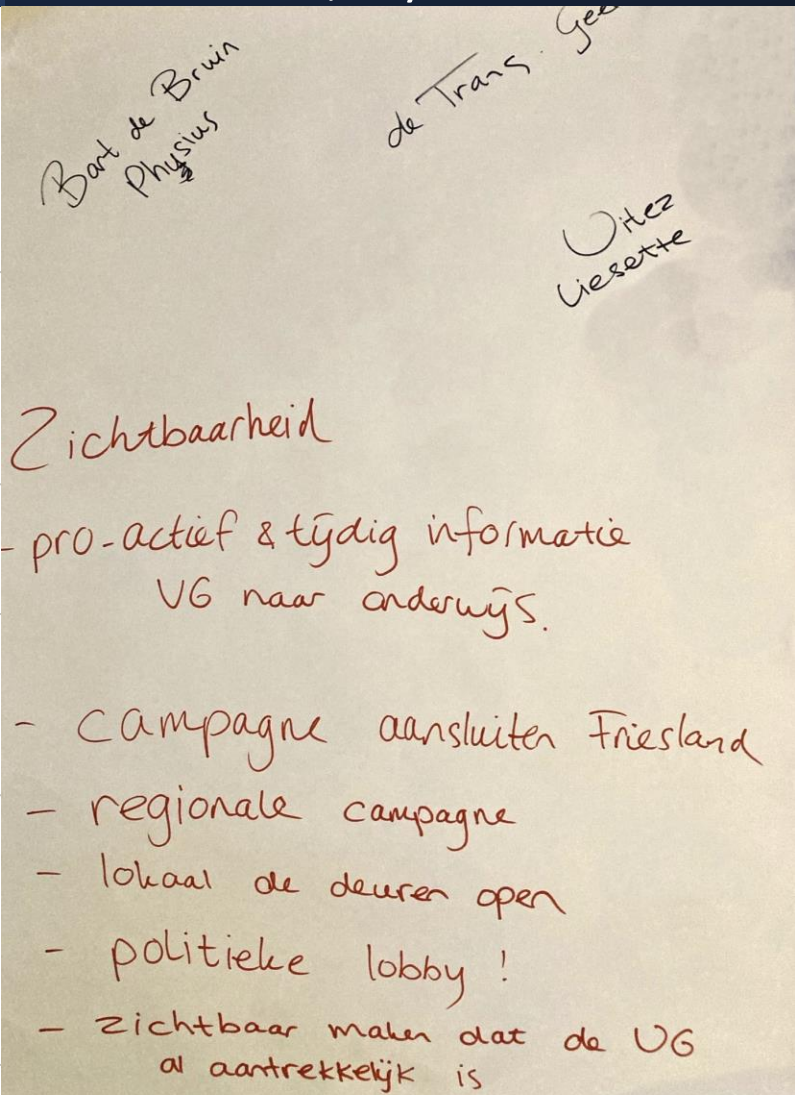 Bart de Bruin
Physius
de Trans. Gee
Uitez
Liesette
Zichtbaarheid
- pro-actief & tijdig informatie
VG naar onderwijs.
- campagne aansluiten Friesland
- regionale campagne
- lokaal de deuren open
- politieke lobby !
- zichtbaar maken dat de VG
al aantrekkelijk is